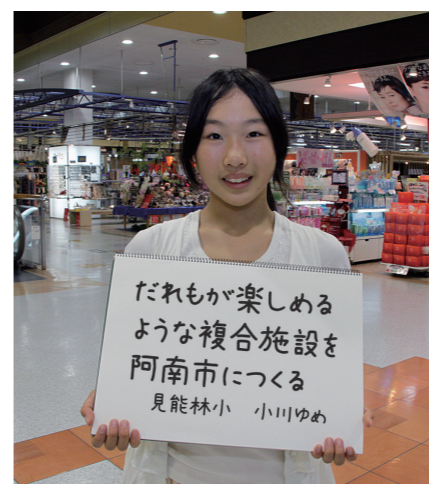 だれもが楽しめる
ような複合施設を
阿南市につくる
見能林小 小川ゆめ